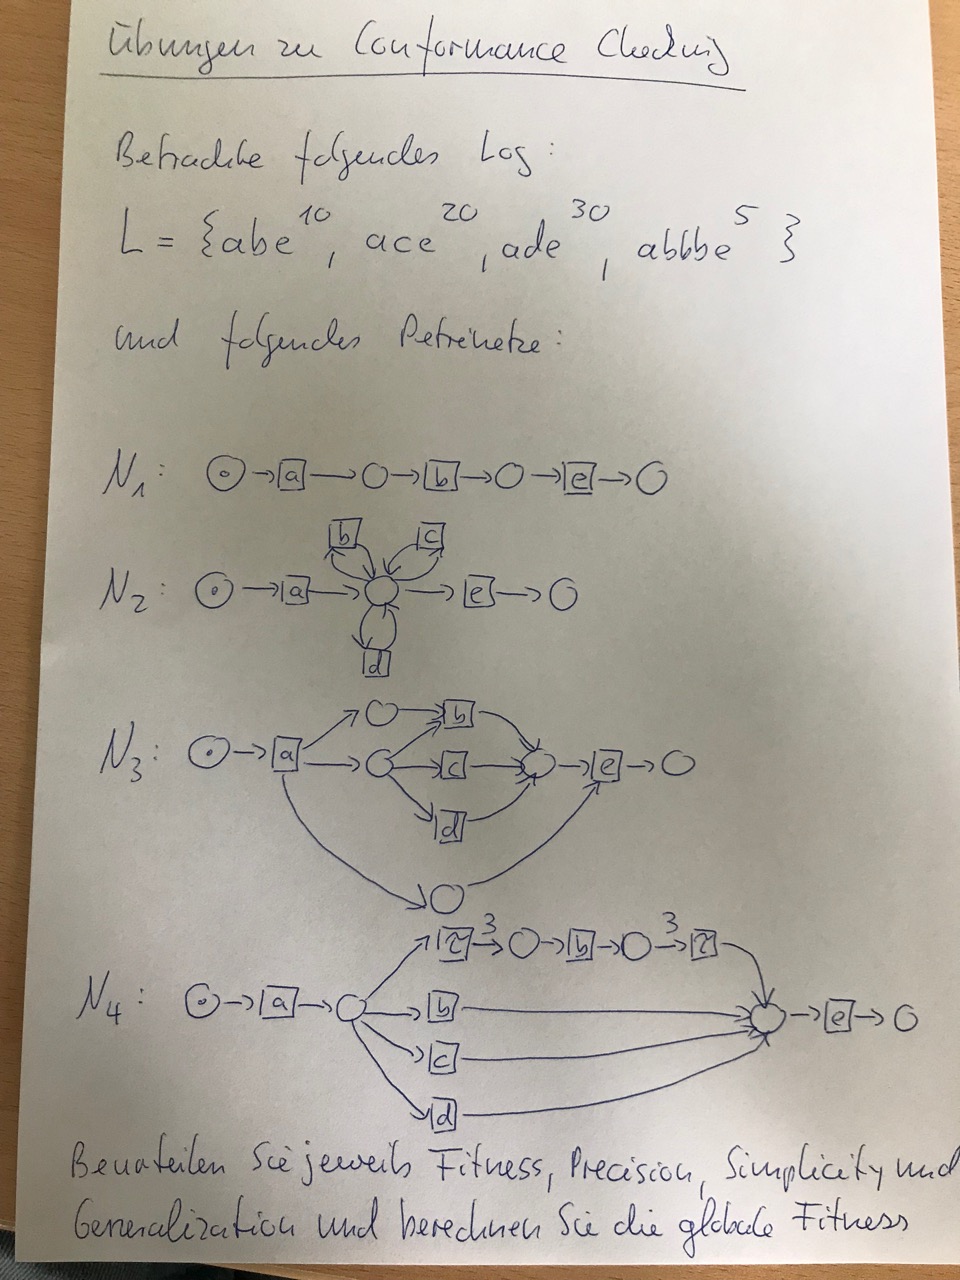 Übungen zu Conformance Checking
Betrachte folgendes Log:
L = {abe^10, ace^20, ade^30, abbbe^5}
und folgendes Petrinetze:
N1: a b e
b c
N2: a e
d
b
N3: a c e
d
τ 3 b 3 τ
N4: a b e
c
d
Beurteilen Sie jeweils Fitness, Precision, Simplicity und
Generalization und berechnen Sie die globale Fitness